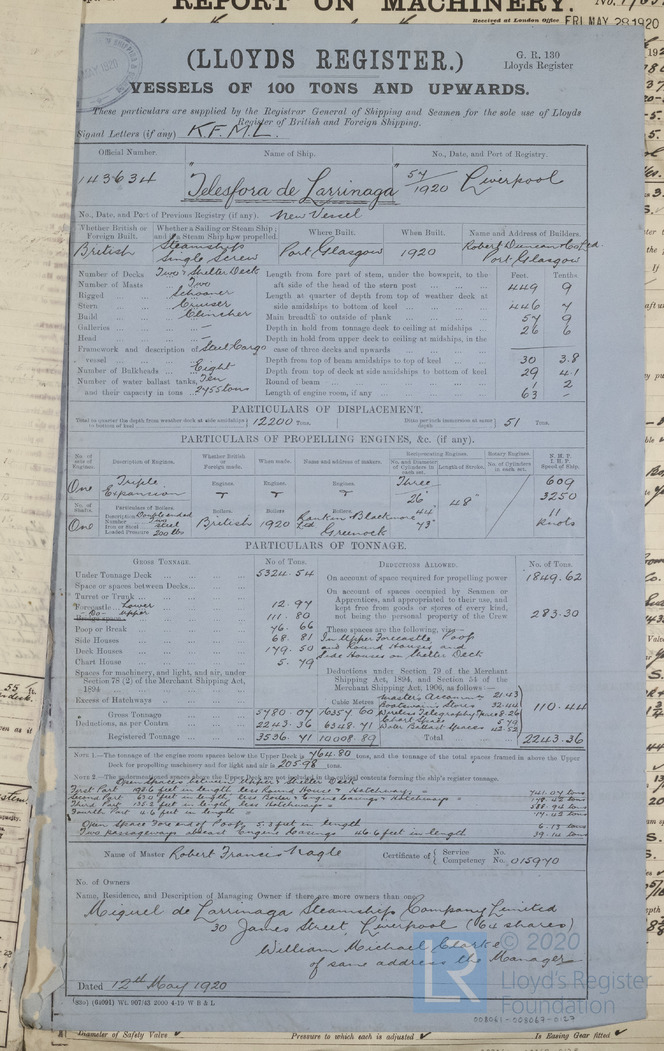 REPORT ON MACHINERY.
No.
Received at London Office FRI. MAY 28 1920
G. R. 130
Lloyds Register
(LLOYDS REGISTER.)
VESSELS OF 100 TONS AND UPWARDS.
These particulars are supplied by the Registrar General of Shipping and Seamen for the sole use of Lloyds
Register of British and Foreign Shipping.
Signal Letters (if any) K.F.M.L.
Official Number. Name of Ship. No., Date, and Port of Registry.
143634 "Telesfora de Larrinaga" 54/1920 Liverpool
No., Date, and Port of Previous Registry (if any). New Vessel
Whether British or Foreign Built. Whether a Sailing or Steam Ship and if a Steam Ship how propelled. Where Built. When Built. Name and Address of Builders.
British Steamship Single Screw Port Glasgow 1920 Robert Duncan & Co Ltd. Port Glasgow
Number of Decks Two & Shelter Deck
Number of Masts Two
Rigged Schooner
Stern Cruiser
Build Clincher
Galleries —
Head —
Framework and description of vessel Steel Cargo
Number of Bulkheads Eight
Number of water ballast tanks, Ten
and their capacity in tons 2455 tons
Feet. Tenths
Length from fore part of stem, under the bowsprit, to the
aft side of the head of the stern post 449 9
Length at quarter of depth from top of weather deck at
side amidships to bottom of keel 446 7
Main breadth to outside of plank 57 9
Depth in hold from tonnage deck to ceiling at midships 26 6
Depth in hold from upper deck to ceiling at midships, in the
case of three decks and upwards
Depth from top of beam amidships to top of keel 30 3.8
Depth from top of deck at side amidships to bottom of keel 29 4.1
Round of beam 1 2
Length of engine room, if any 63 —
PARTICULARS OF DISPLACEMENT.
Total to quarter the depth from weather deck at side amidships to bottom of keel 12200 Tons. Ditto per inch immersion at same depth 51 Tons.
PARTICULARS OF PROPELLING ENGINES, &c. (if any).
No. of sets of Engines. Description of Engines. Whether British or Foreign made. When made. Name and address of makers. Reciprocating Engines. No. and Diameter of Cylinders in each set. Length of Stroke. Rotary Engines. No. of Cylinders in each set. N.H.P. I.H.P. Speed of Ship.
One Triple Expansion Engines. Engines. Engines. Three 26" 44" 73" 48" 609 3250 11 Knots
No. of Shafts. Particulars of Boilers. Boilers. Boilers. Boilers.
One Description Number Two Iron or Steel Steel Loaded Pressure 200 lbs British 1920 Rankin & Blackmore Ltd Greenock
PARTICULARS OF TONNAGE.
GROSS TONNAGE. No of Tons.
Under Tonnage Deck 5324.54
Space or spaces between Decks
Turret or Trunk
Forecastle Lower 12.97
-Do- upper 111.80
Bridge space
Poop or Break 76.66
Side Houses 68.81
Deck Houses 179.50
Chart House 5.79
Spaces for machinery, and light, and air, under
Section 78 (2) of the Merchant Shipping Act,
1894
Excess of Hatchways
Cubic Metres
Gross Tonnage 5780.07 16357.60
Deductions, as per Contra 2243.36 6348.71
Registered Tonnage 3536.71 10008.89
DEDUCTIONS ALLOWED. No. of Tons.
On account of space required for propelling power 1849.62
On account of spaces occupied by Seamen or
Apprentices, and appropriated to their use, and
kept free from goods or stores of every kind,
not being the personal property of the Crew 283.30
These spaces are the following, viz:—
In Upper Forecastle Poop
and Round Houses and
Side Houses on Shelter Deck
Deductions under Section 79 of the Merchant
Shipping Act, 1894, and Section 54 of the
Merchant Shipping Act, 1906, as follows:—
Masters Accommn 21.43
Boatswains Stores 32.44
Wireless Telegraphy Space 8.26
Chart Space 5.79
Water Ballast Spaces 42.52
110.44
Total 2243.36
NOTE 1.—The tonnage of the engine room spaces below the Upper Deck is 764.80 tons, and the tonnage of the spaces framed in above the Upper
Deck for propelling machinery and for light and air is 205.98 tons.
NOTE 2.—The undermentioned spaces above the Upper Deck are not included in the cubical contents forming the ship's register tonnage.
Open Spaces between Upper & Shelter Deck
First Part feet in length less Round House & Hatchways 741.04 tons
Second Part feet in length less Boiler & Engine Casings & Hatchways tons
Third Part 135.2 feet in length, less Hatchways 588.94 tons
Fourth Part 4.6 feet in length 17.42 tons
Open Space Fore end of Poop, 5.3 feet in length 6.13 tons
Two passageways abreast Engine Casings 46.6 feet in length 39.14 tons
Name of Master Robert Francis Nagle Certificate of Service No. Competency No. 015970
No. of Owners
Name, Residence, and Description of Managing Owner if there are more owners than one
Miguel de Larrinaga Steamship Company Limited
30 James Street, Liverpool (64 shares)
William Michael Clarke
of same address the Manager
Dated 12th May 1920
(04091) Wt. 907/43 2000 4-19 W B & L
LR © 2020
Lloyd's Register
Foundation
008061-008067-0127
Diameter of Safety Valve Pressure to which each is adjusted Is Easing Gear fitted